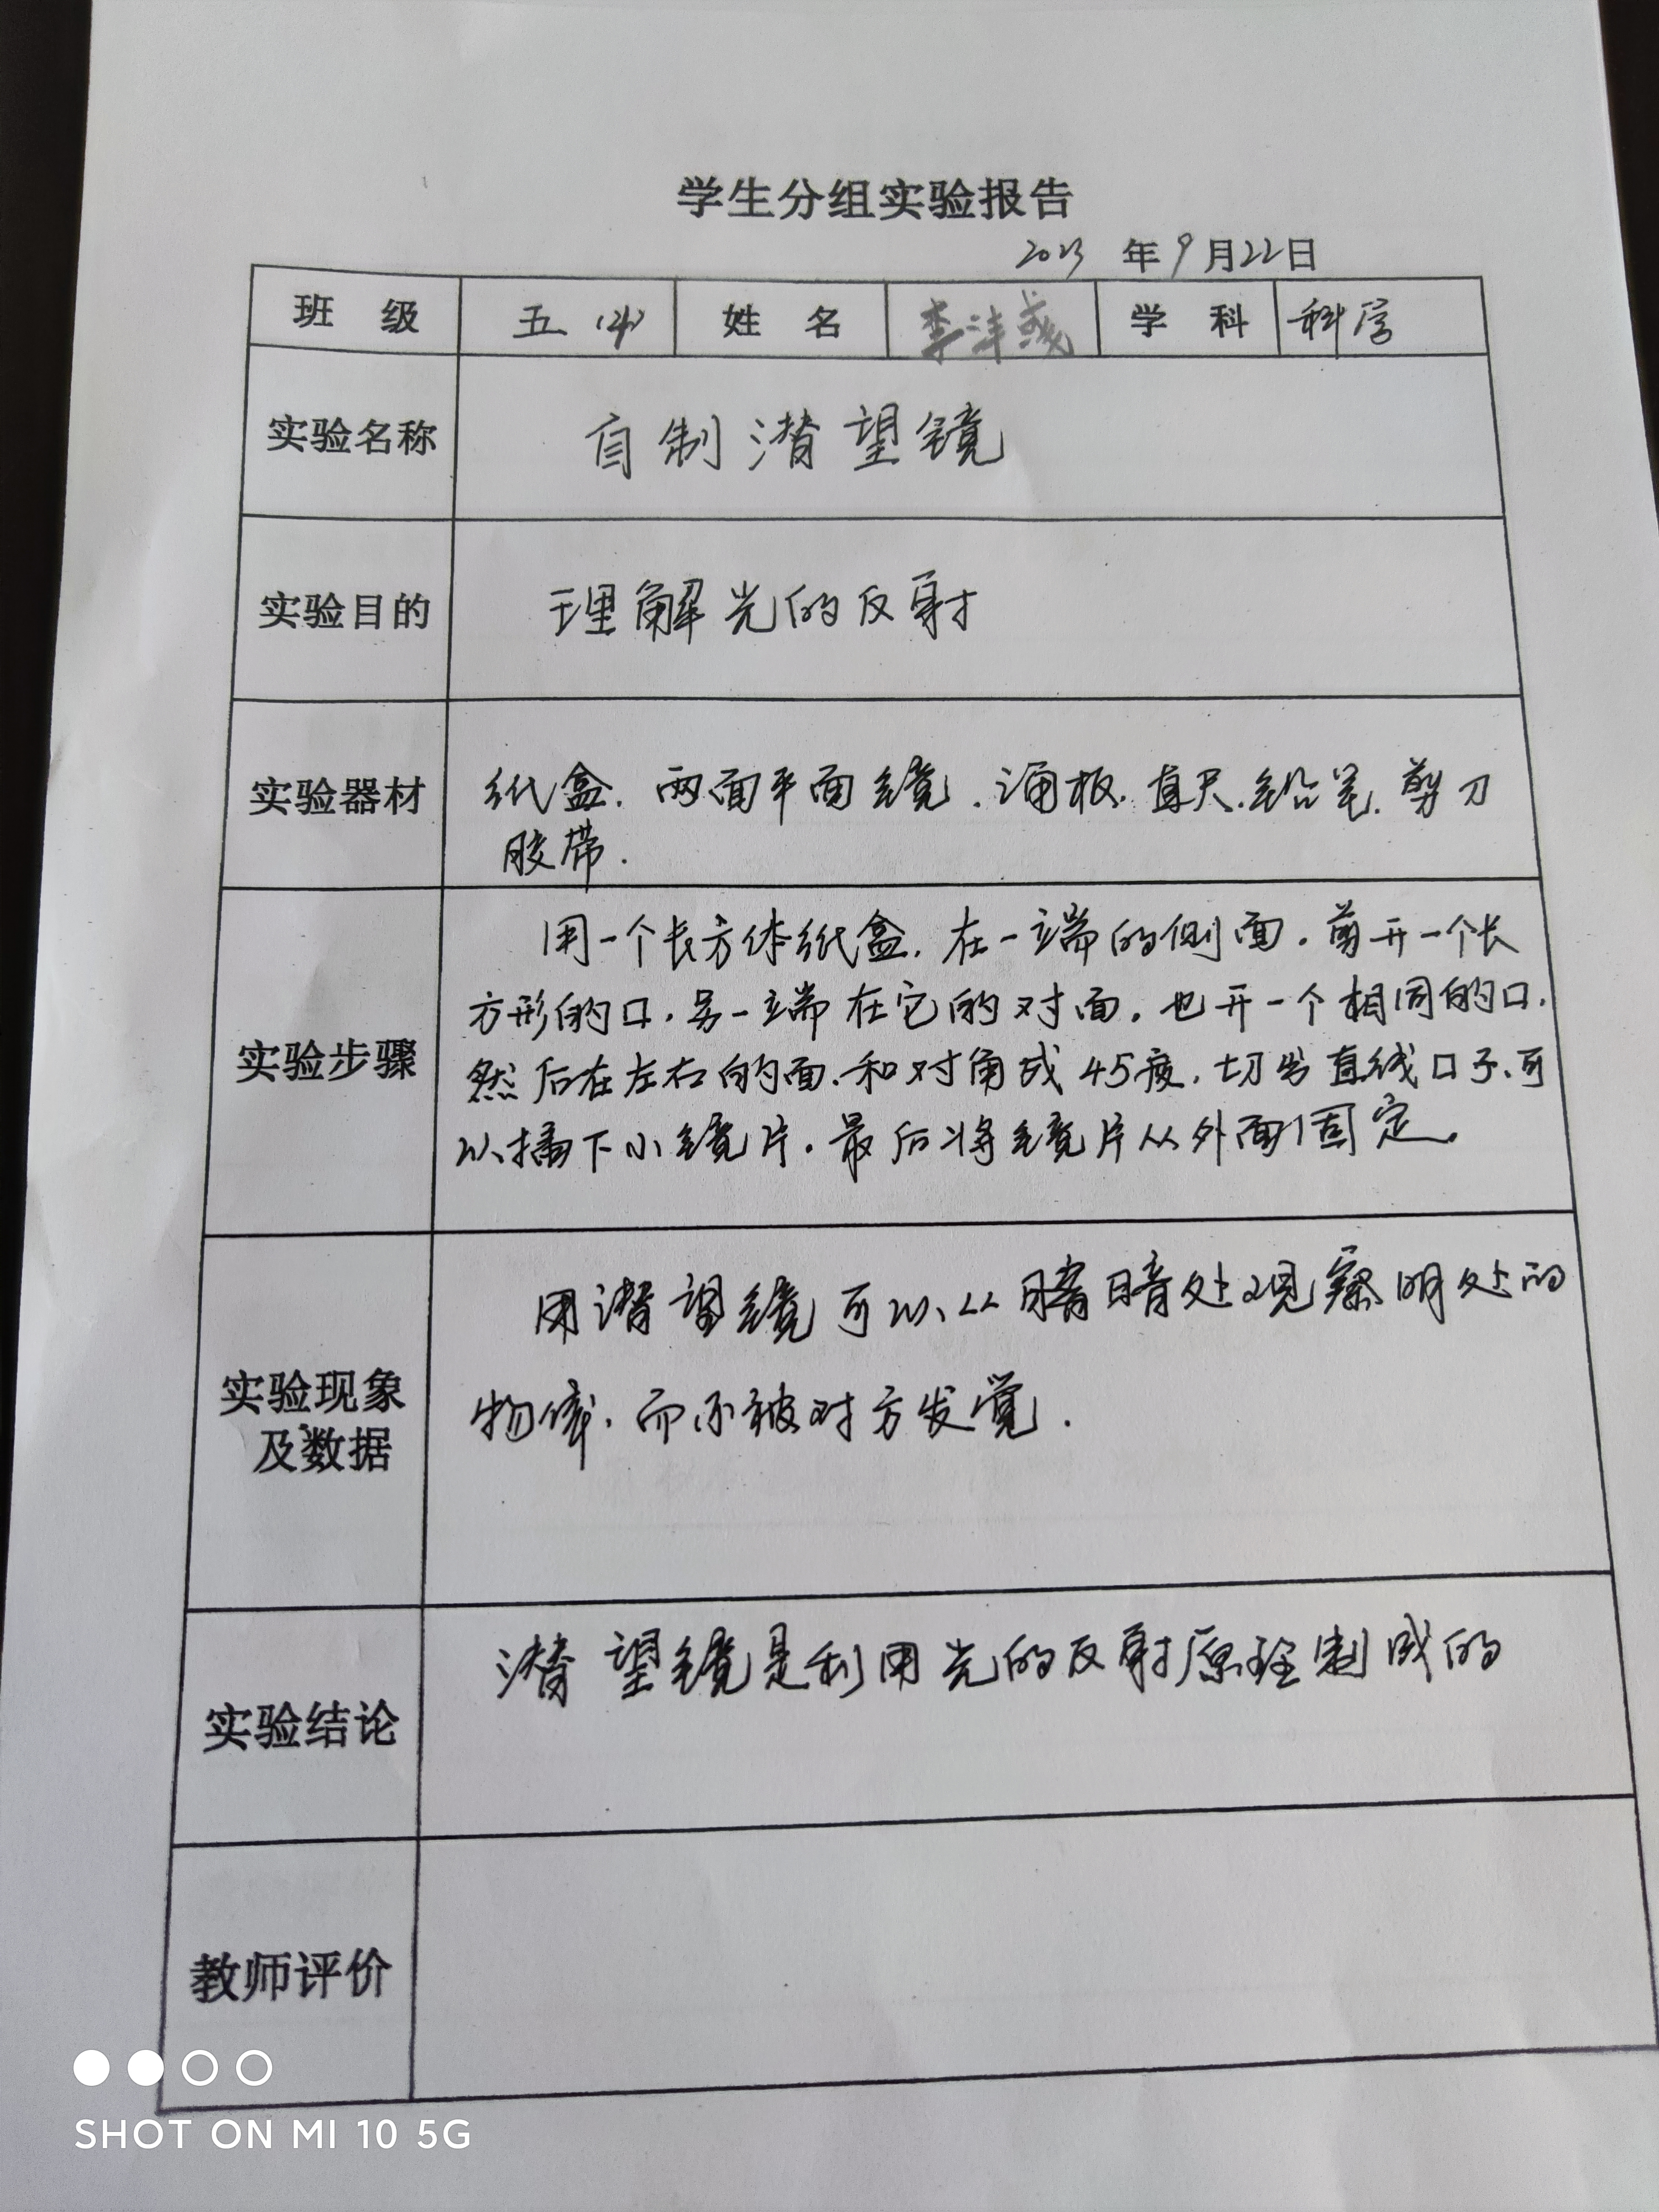 学生分组实验报告
2023 年9月22日
班 级 五（4） 姓 名 李沣彧 学 科 科学
实验名称 自制潜望镜
实验目的 理解光的反射
实验器材 纸盒.两面平面镜.涌板.直尺.铅笔.剪刀
胶带.
实验步骤
用一个长方体纸盒.在一端的侧面.剪开一个长
方形的口.另一端在它的对面.也开一个相同的口.
然后在左右的面.和对角成45度.切出直线口子.可
以插下小镜片.最后将镜片从外面固定。
实验现象
及数据
用潜望镜可以从暗处观察明处的
物体.而不被对方发觉.
实验结论 潜望镜是利用光的反射原理制成的
教师评价
SHOT ON MI 10 5G